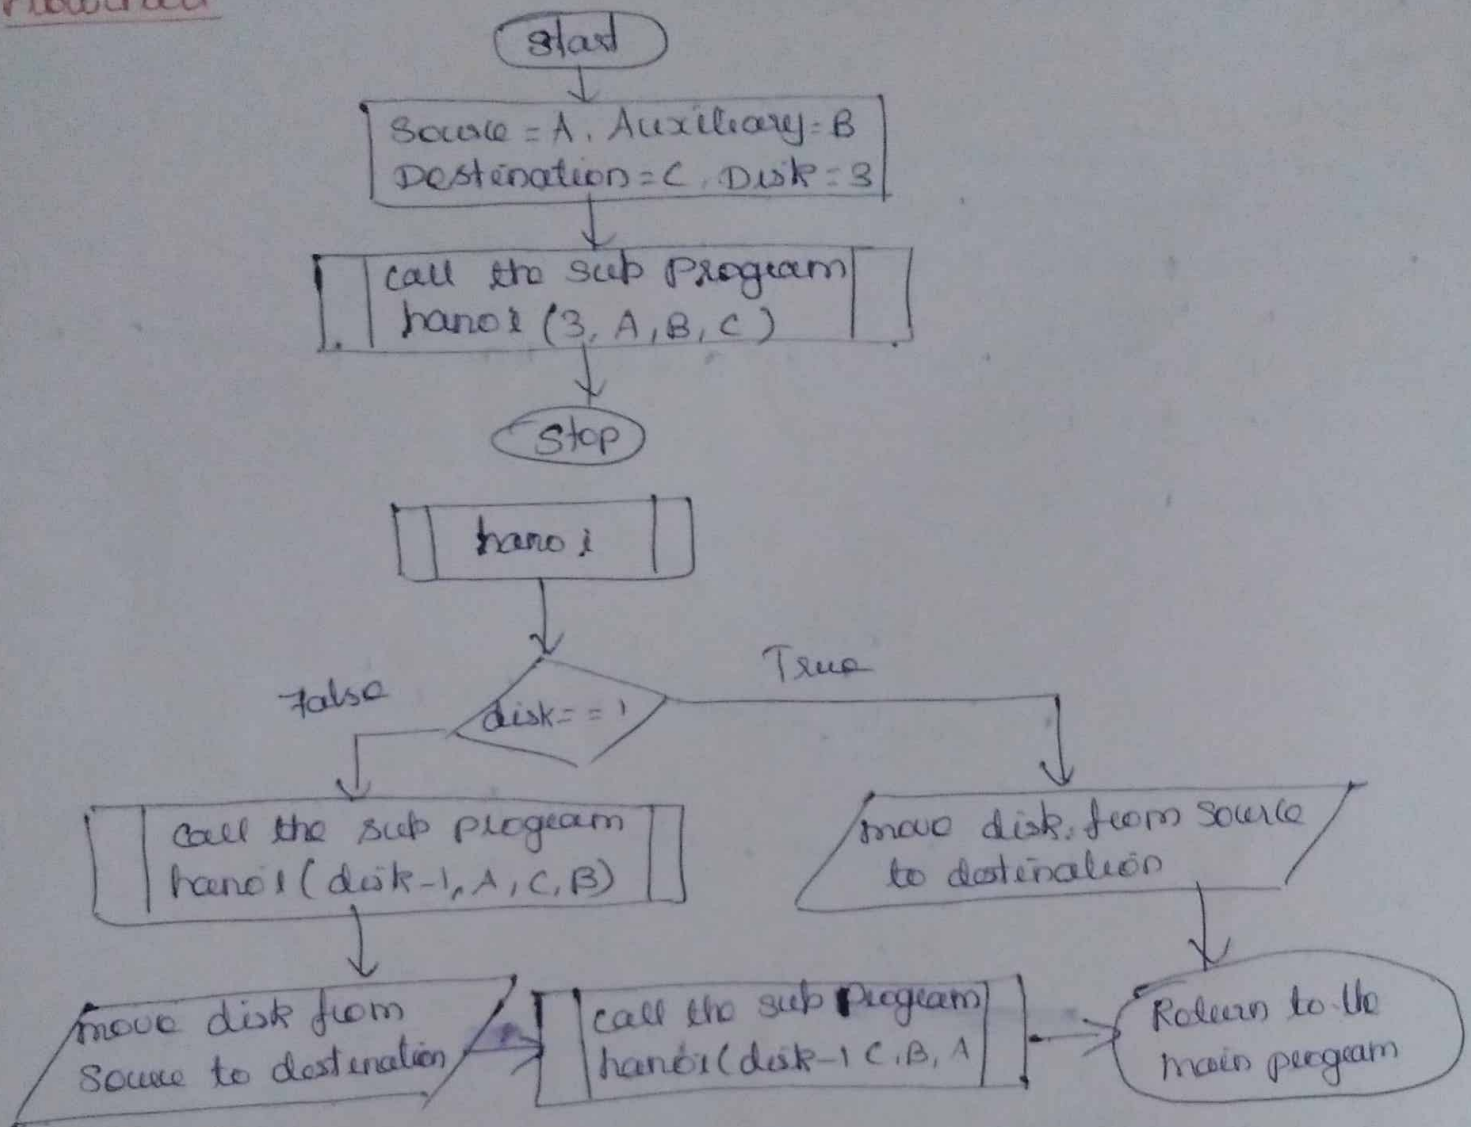 Flowchart
Start
Source = A, Auxiliary = B
Destination = C, Disk = 3
call the sub program
hanoi (3, A, B, C)
Stop
hanoi
disk == 1
False
True
call the sub program
hanoi (disk-1, A, C, B)
move disk from source
to destination
move disk from
source to destination
call the sub program
hanoi (disk-1 C, B, A
Return to the
main program